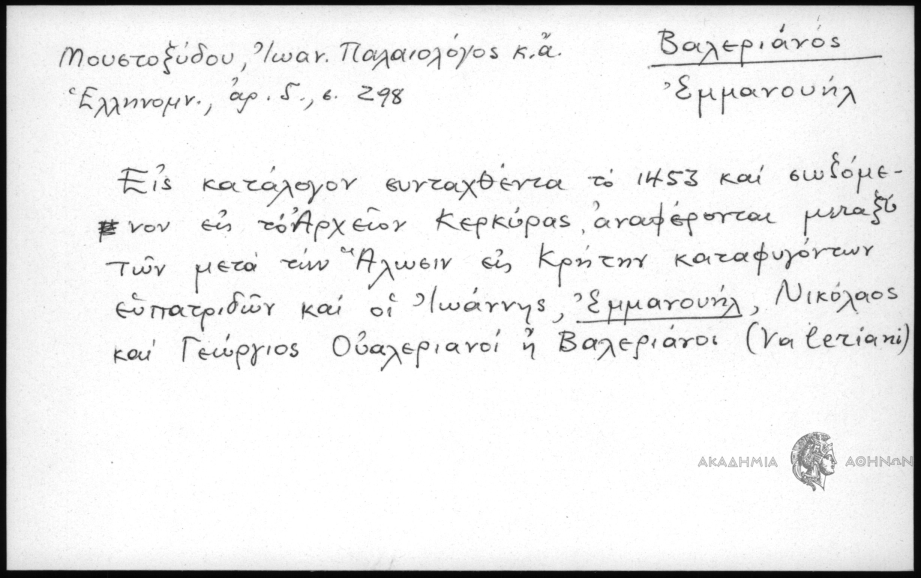 Μουστοξύδου, Ἰωαν. Παλαιολόγος κ.ἄ.
Ἑλληνομν., ἀρ. δ., σ. 298
Βαλεριάνός
Ἐμμανουήλ
Εἰς κατάλογον συνταχθέντα τό 1453 καί σωζόμε-
νον εἰς τό Ἀρχεῖον Κερκύρας, ἀναφέρονται μεταξύ
τῶν μετά τήν Ἅλωσιν εἰς Κρήτην καταφυγόντων
εὐπατριδῶν καί οἱ Ἰωάννης, Ἐμμανουήλ, Νικόλαος
καί Γεώργιος Οὐαλεριανοί ἤ Βαλεριάνοι (Valeriani)
ΑΚΑΔΗΜΙΑ ΑΘΗΝΩΝ